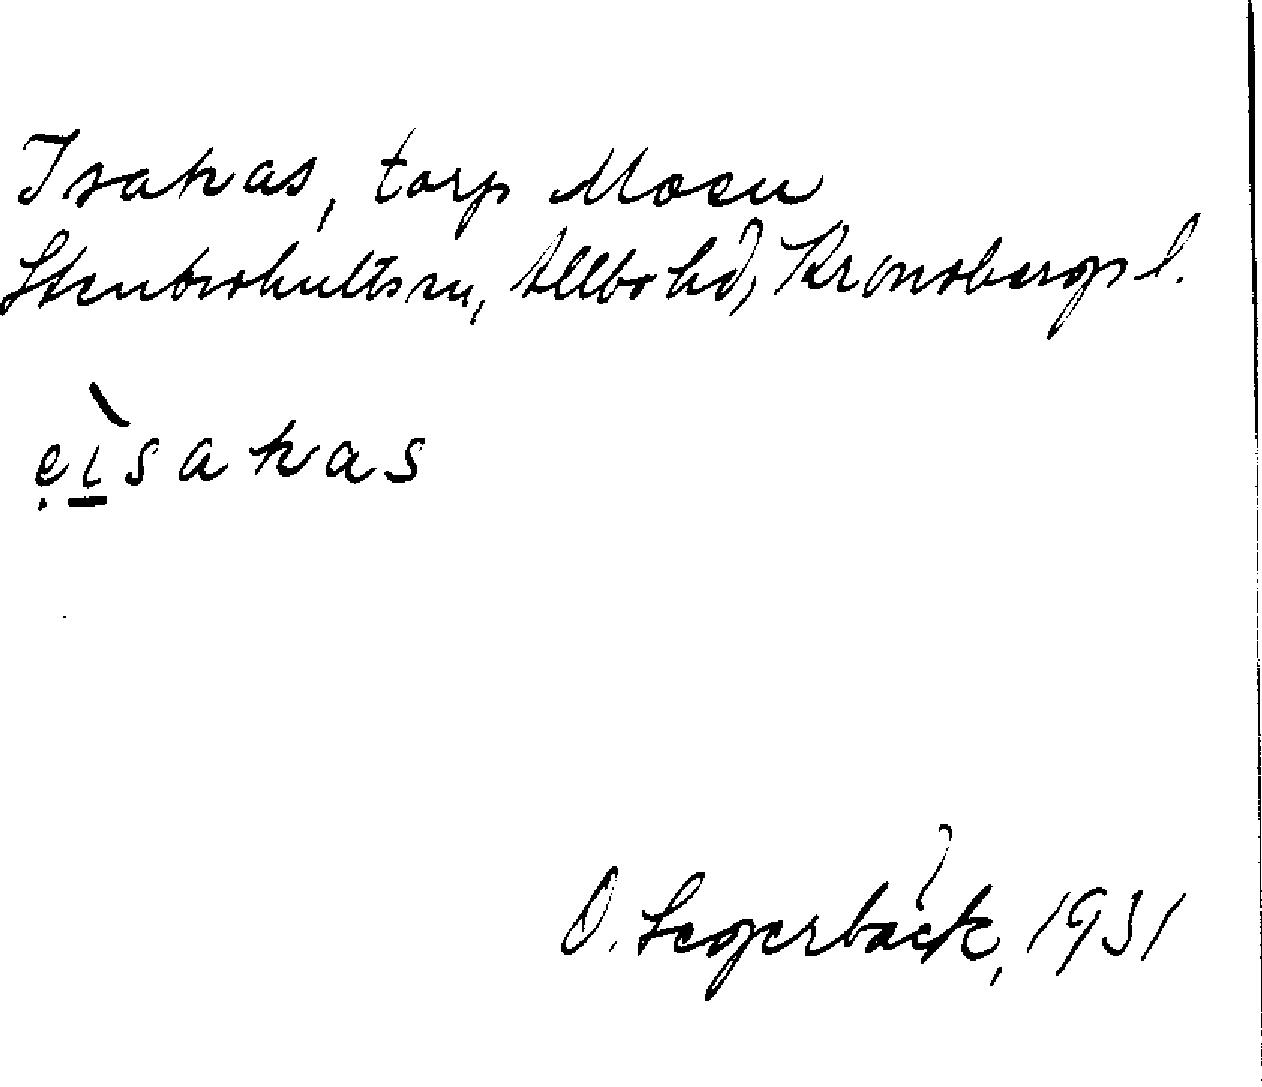 Isakas, torp Moen
Stenbrohults sn, Allbo hd, Kronobergs l.
ẹì̱sakas
O. Segerbäck, 1931